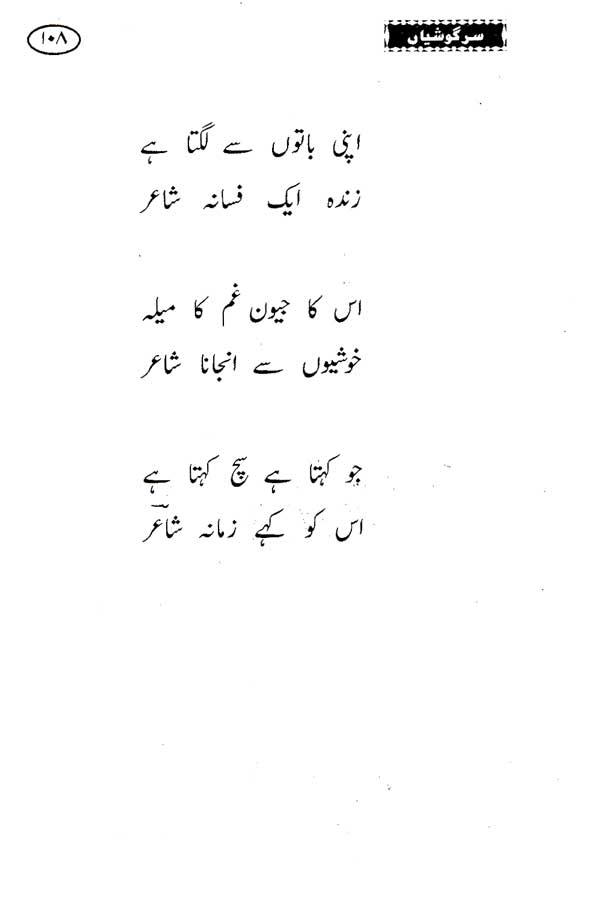 سرگوشیاں
۱۰۸
اپنی باتوں سے لگتا ہے
زندہ ایک فسانہ شاعر
اس کا جیون غم کا میلہ
خوشیوں سے انجانا شاعر
جو کہتا ہے سچ کہتا ہے
اس کو کہے زمانہ شاعر